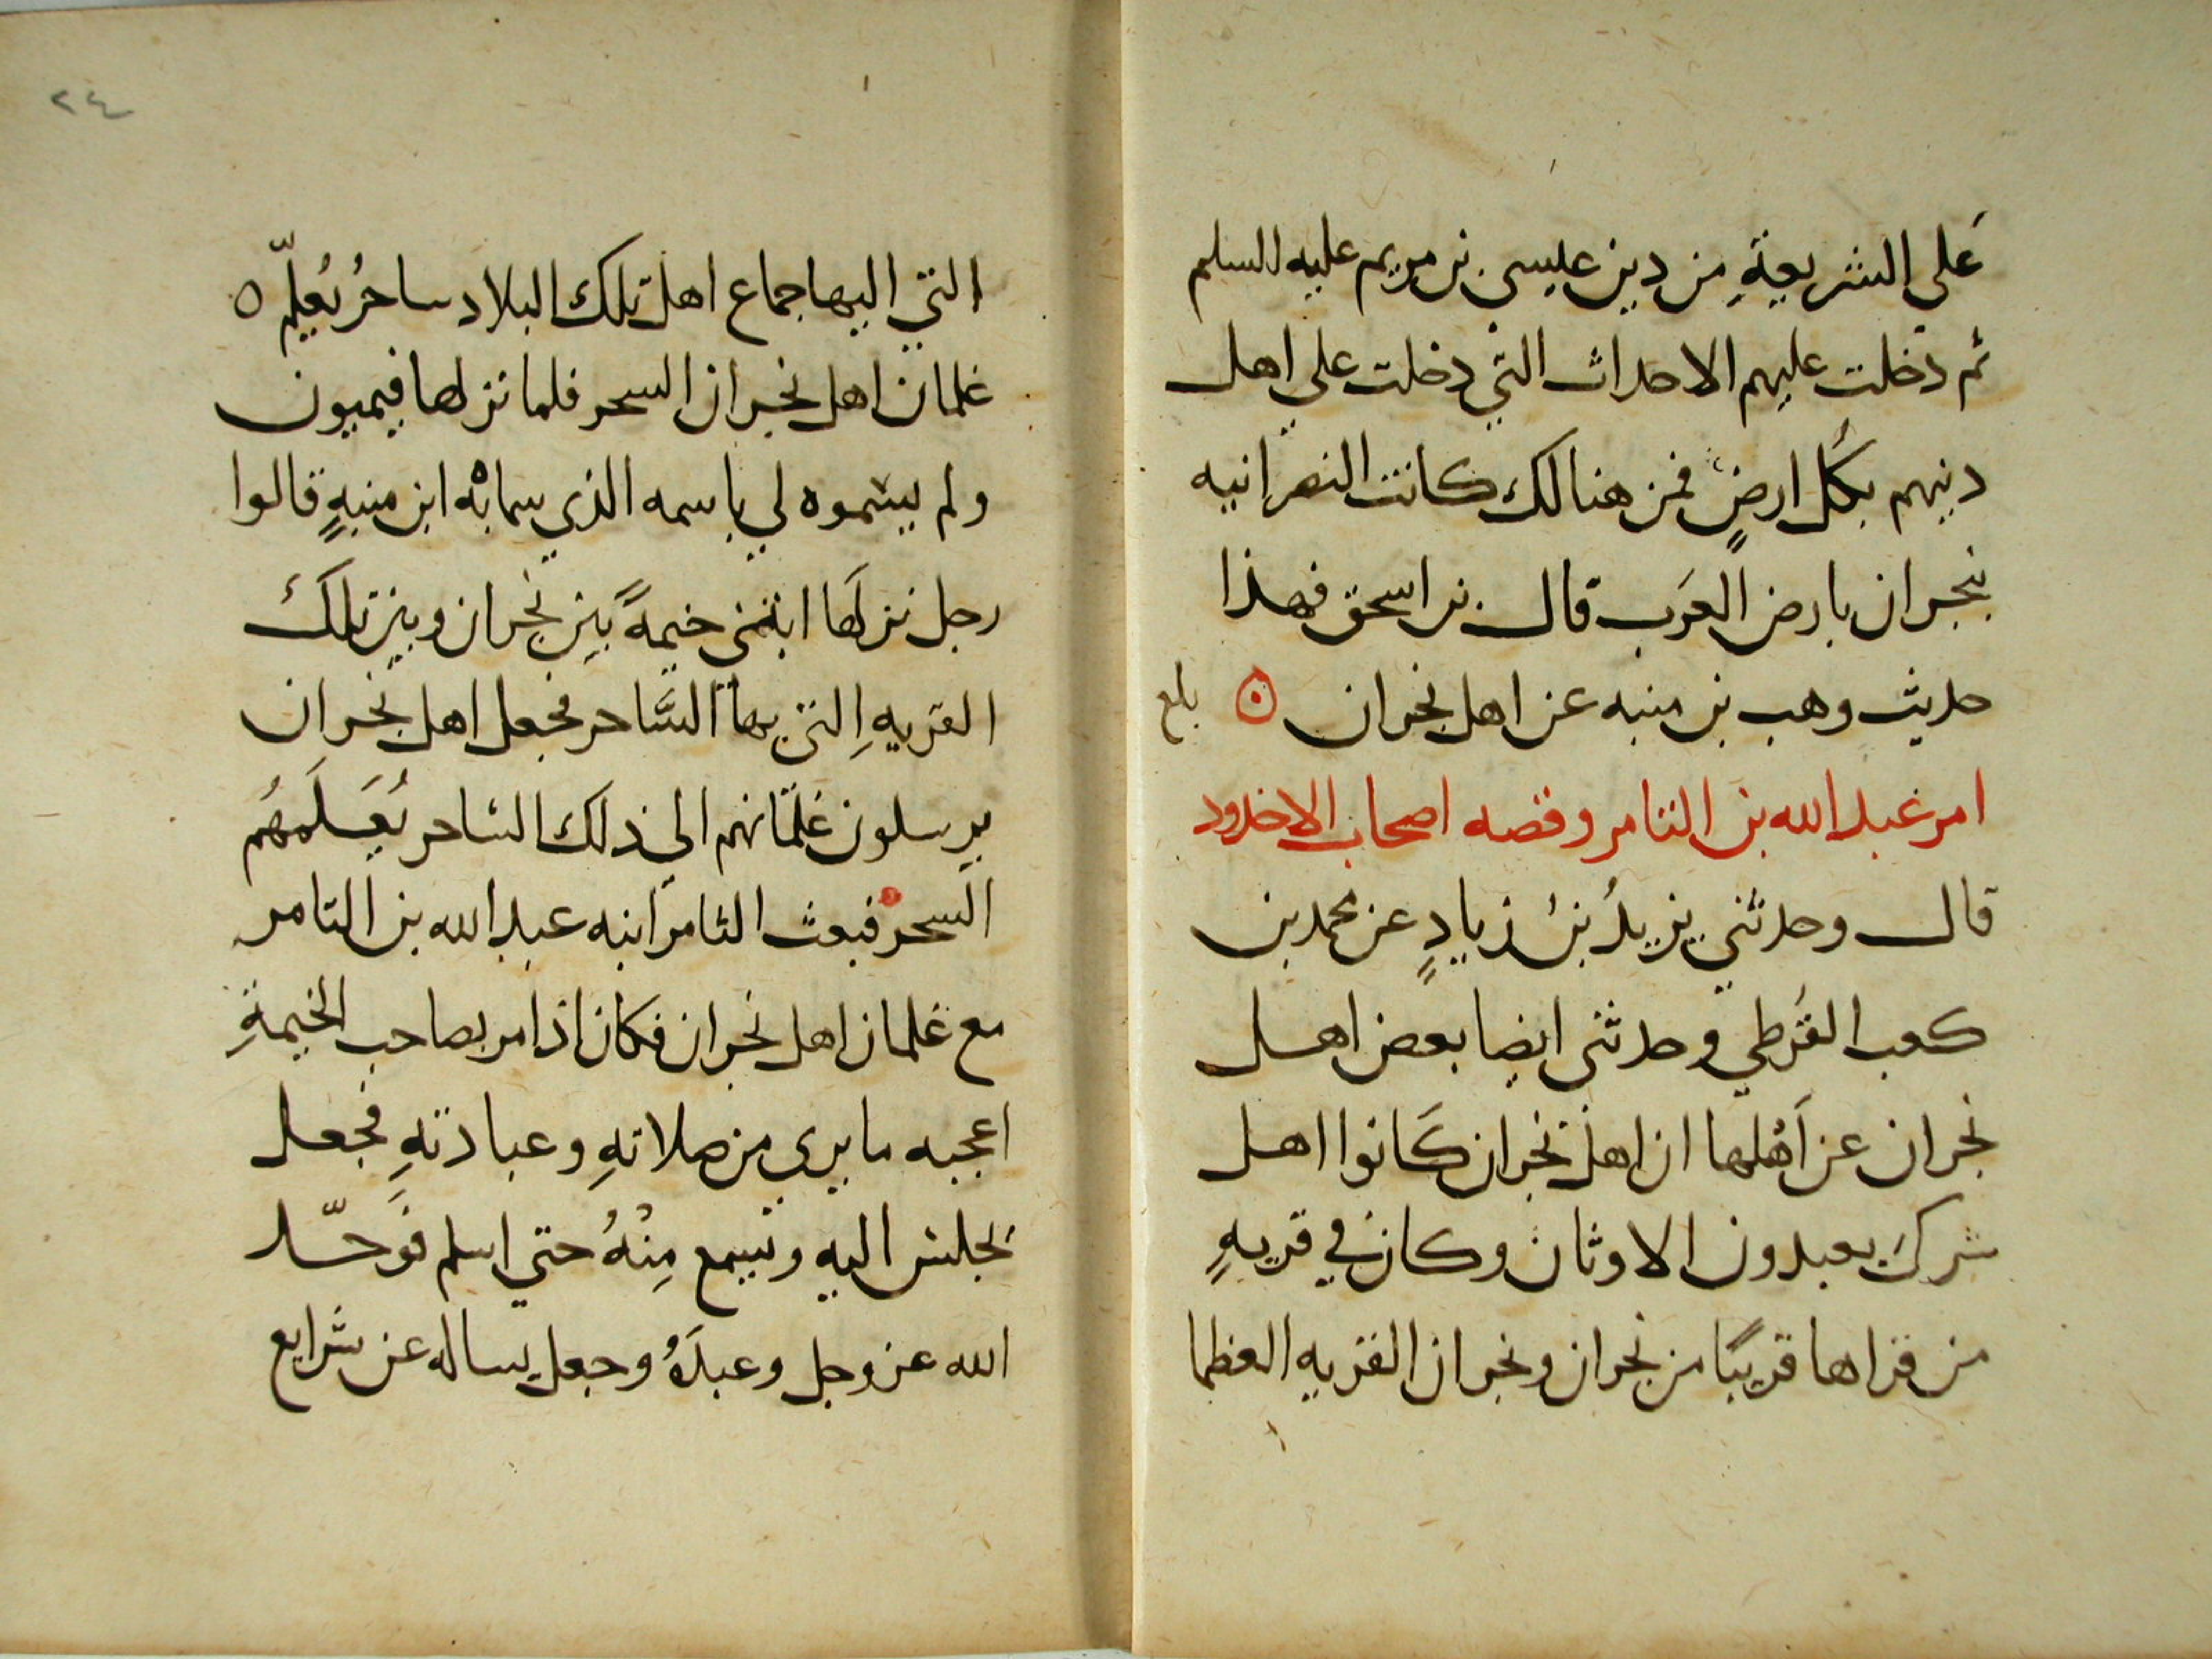 عَلي الشريعةِ من دين عيسي بن مريم عليه السلم
ثم دَخلت عليهم الاحداث التي دخلت علي اهل
دينهم بكُل ارضٍ فمن هنالك كانت النصرانيه
بنجران بارض العَرب قال بن اسحق فهذا
حديث وهب بن منبه عن اهل نجران
بلغ
امر عبد الله بن الثامر وقصه اصحاب الاخدود
قال وحدثني يزيدُ بنُ زيادٍ عن محمد بن
كعب القُرظي وحدثني ايضا بعض اهل
نجران عن اَهْلها ان اهل نجران كَانوا اهل
شرك يعبدون الاوثان وكان في قريهٍ
من قراها قريبًا من نجران ونجران القريه العظما
٢٤
التي اليها جماع اهل تلك البلاد ساحرُ يُعلّم
غلمان اهل نجران السحر فلما نزلها فيميون
ولم يسموه لي باسمه الذي سماه به ابن منبهٍ قالوا
رجل نزلَها ابتني خيمةً بين نجران وبين تلك
القريهِ التي بها السَّاحر فجعل اهل نجران
يرسلون غلمانهم الي ذلك الساحر يُعَلمهُم
السحر فبعث الثامر ابنه عبد الله بن الثامر
مع غلمان اهل نجران فكان اذا مر بصاحب الخيمةِ
اعجبه ما يري من صلاتهِ وعبادتهِ فجعل
يجلس اليه ويسمع مِنْهُ حتي اسلم فَوَحّد
الله عز وجل وعبدَهُ وجعل يساله عن شرايع